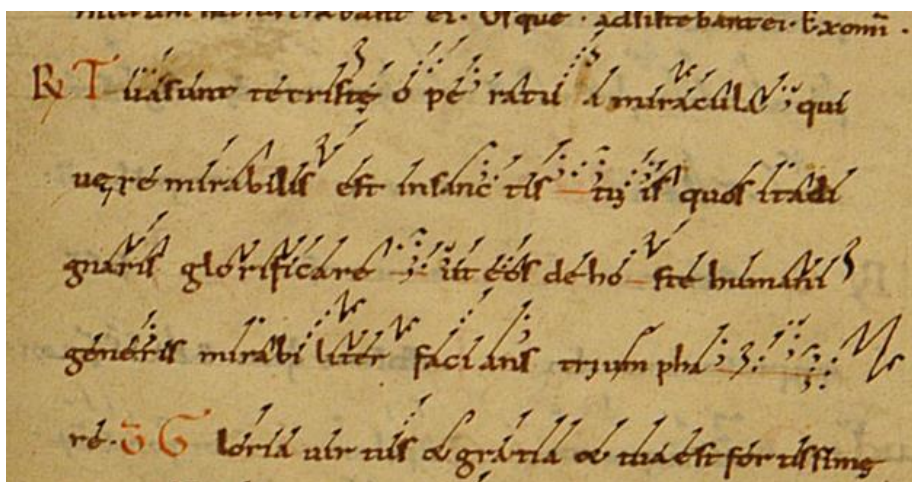 ministrabant ei · Usque · adsistebant ei ·
℟ T ua sunt te criste o pe ratu a miracula qui
uere mirabilis est in sanc tis tu is quos ita di
gnaris glorificare ut eos de ho ste humani
generis mirabi liter facians trium pha
re · G loria uir tus & gratia & tua est for tissime